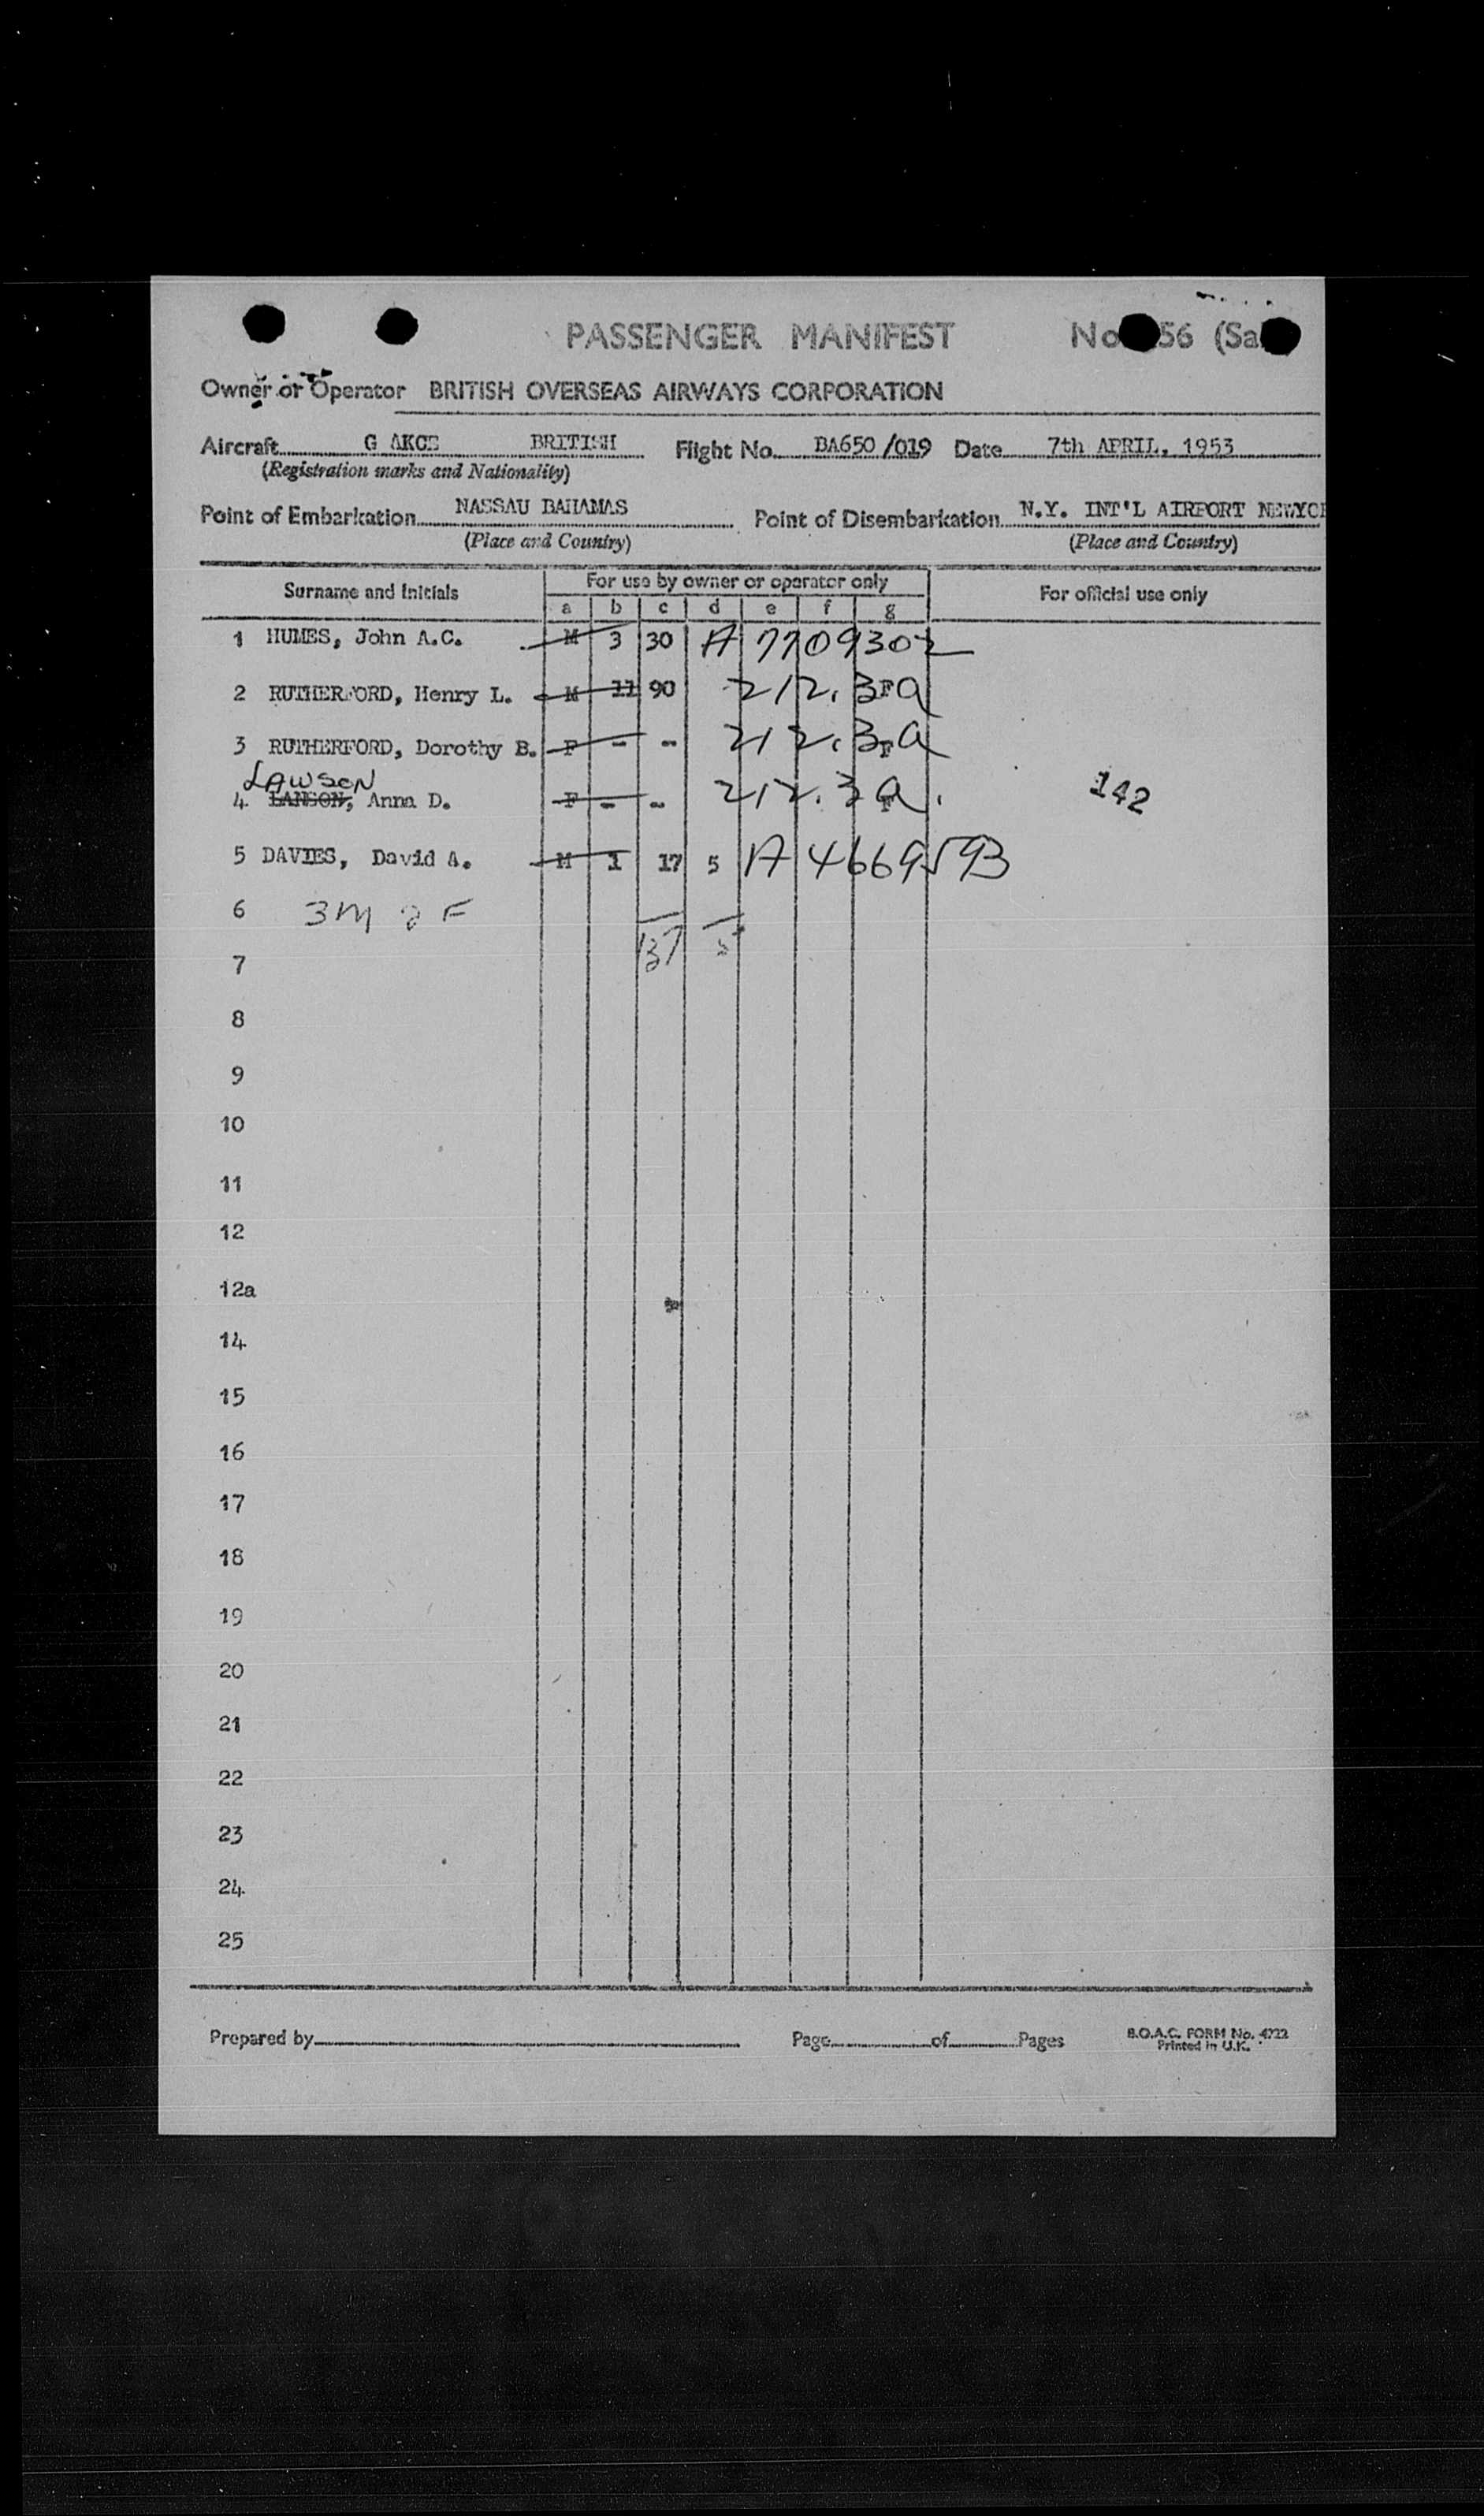 PASSENGER MANIFEST No 56 (Sa
Owner or Operator BRITISH OVERSEAS AIRWAYS CORPORATION
Aircraft G AKCE BRITISH Flight No. BA650/019 Date 7th APRIL, 1953
(Registration marks and Nationality)
Point of Embarkation NASSAU BAHAMAS Point of Disembarkation N.Y. INT'L AIRPORT NEWYO
(Place and Country) (Place and Country)
Surname and Initials For use by owner or operator only For official use only
a b c d e f g
1 HUMES, John A.C. M 3 30 A 7709302
2 RUTHERFORD, Henry L. M 11 90 212.3 F a
3 RUTHERFORD, Dorothy B. F - - 212.3 F a
LAWSON
4 LANSON, Anna D. F - - 212.3 a. 142
5 DAVIES, David A. M 1 17 5 A 4669593
6 3M 2F
137 5
7
8
9
10
11
12
12a
14
15
16
17
18
19
20
21
22
23
24
25
Prepared by Page of Pages B.O.A.C. FORM No. 4722
Printed in U.K.